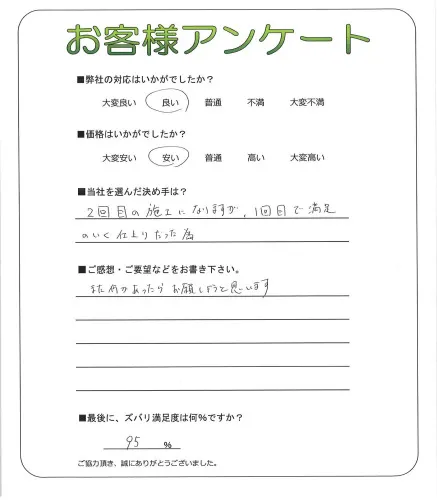 お客様アンケート
■弊社の対応はいかがでしたか？
大変良い 良い 普通 不満 大変不満
■価格はいかがでしたか？
大変安い 安い 普通 高い 大変高い
■当社を選んだ決め手は？
2回目の施工になりますが、1回目で満足
のいく仕上りだった為
■ご感想・ご要望などをお書き下さい。
また何かあったらお願いしようと思います
■最後に、ズバリ満足度は何％ですか？
95 ％
ご協力頂き、誠にありがとうございました。